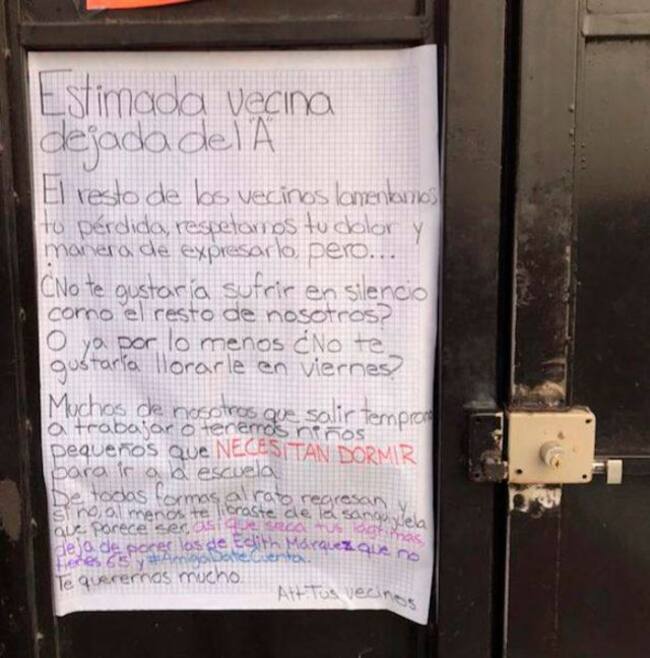 Estimada vecina
dejada del "A"
El resto de los vecinos lamentamos
tu pérdida, respetamos tu dolor y
manera de expresarlo, pero...
¿No te gustaría sufrir en silencio
como el resto de nosotros?
O ya por lo menos ¿No te
gustaría llorarle en viernes?
Muchos de nosotros que salir temprano
a trabajar o tenemos niños
pequeños que NECESITAN DORMIR
para ir a la escuela
De todas formas al rato regresan y
si no, al menos te libraste de la sanguijuela
que parece ser, así que seca tus lágrimas,
deja de poner las de Edith Márquez que no
tienes 65 y #AmigaDateCuenta.
Te queremos mucho.
Att: Tus vecinos